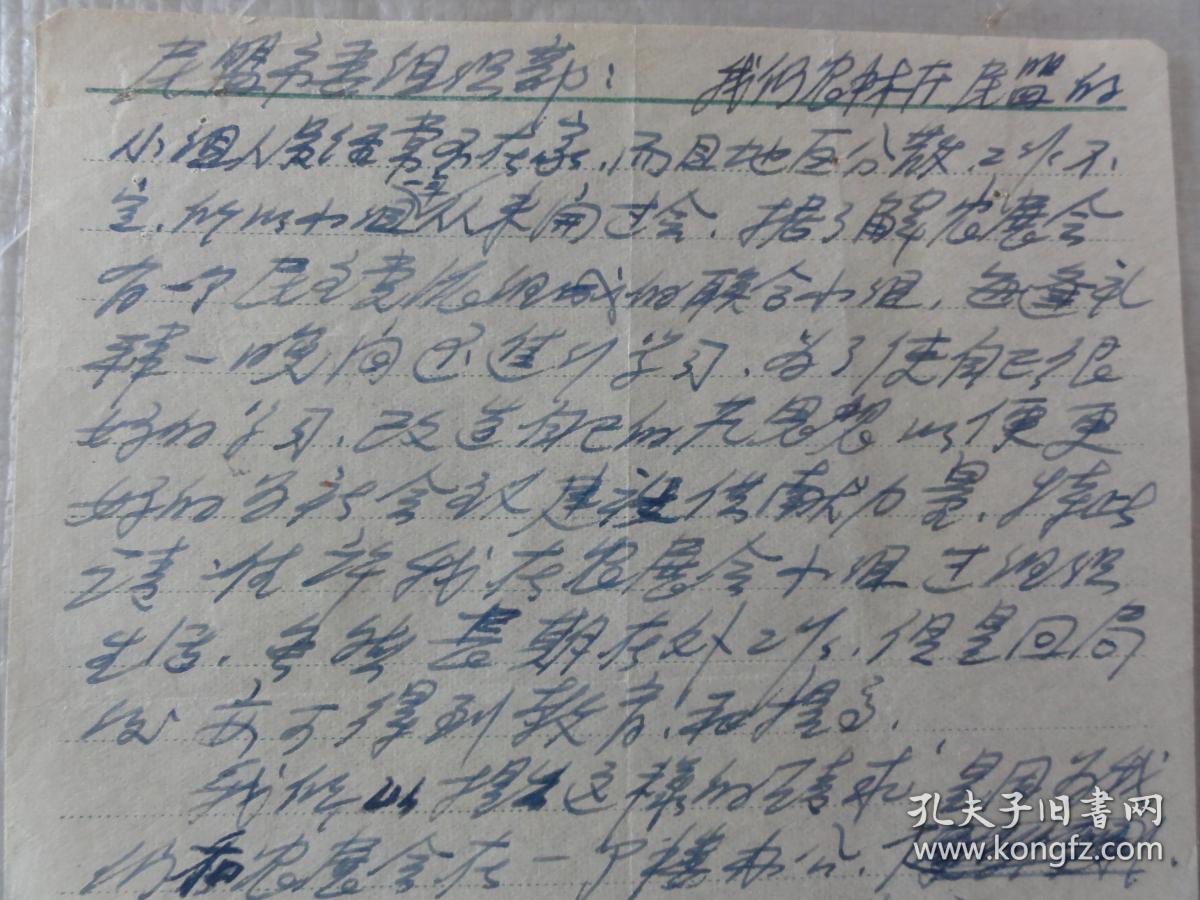 民盟市委组织部： 我们农林在民盟的
小组人员经常不在家，而且地区分散，工作不
定，所以小组从未开过会，据了解农展会
有一个民主党派组成的联合小组，每逢礼
拜一晚间还进行学习，为了使自己很
好的学习，改造自己的思想以便更
好的为社会主义建设供献力量，特此
请准许我在农展会小组过组织
生活，虽然长期在外工作，但是回局
后亦可得到教育和提高，
我所以提出这样的请求，是因为我
们和农展会在一个楼办公，
孔夫子旧书网
www.kongfz.com